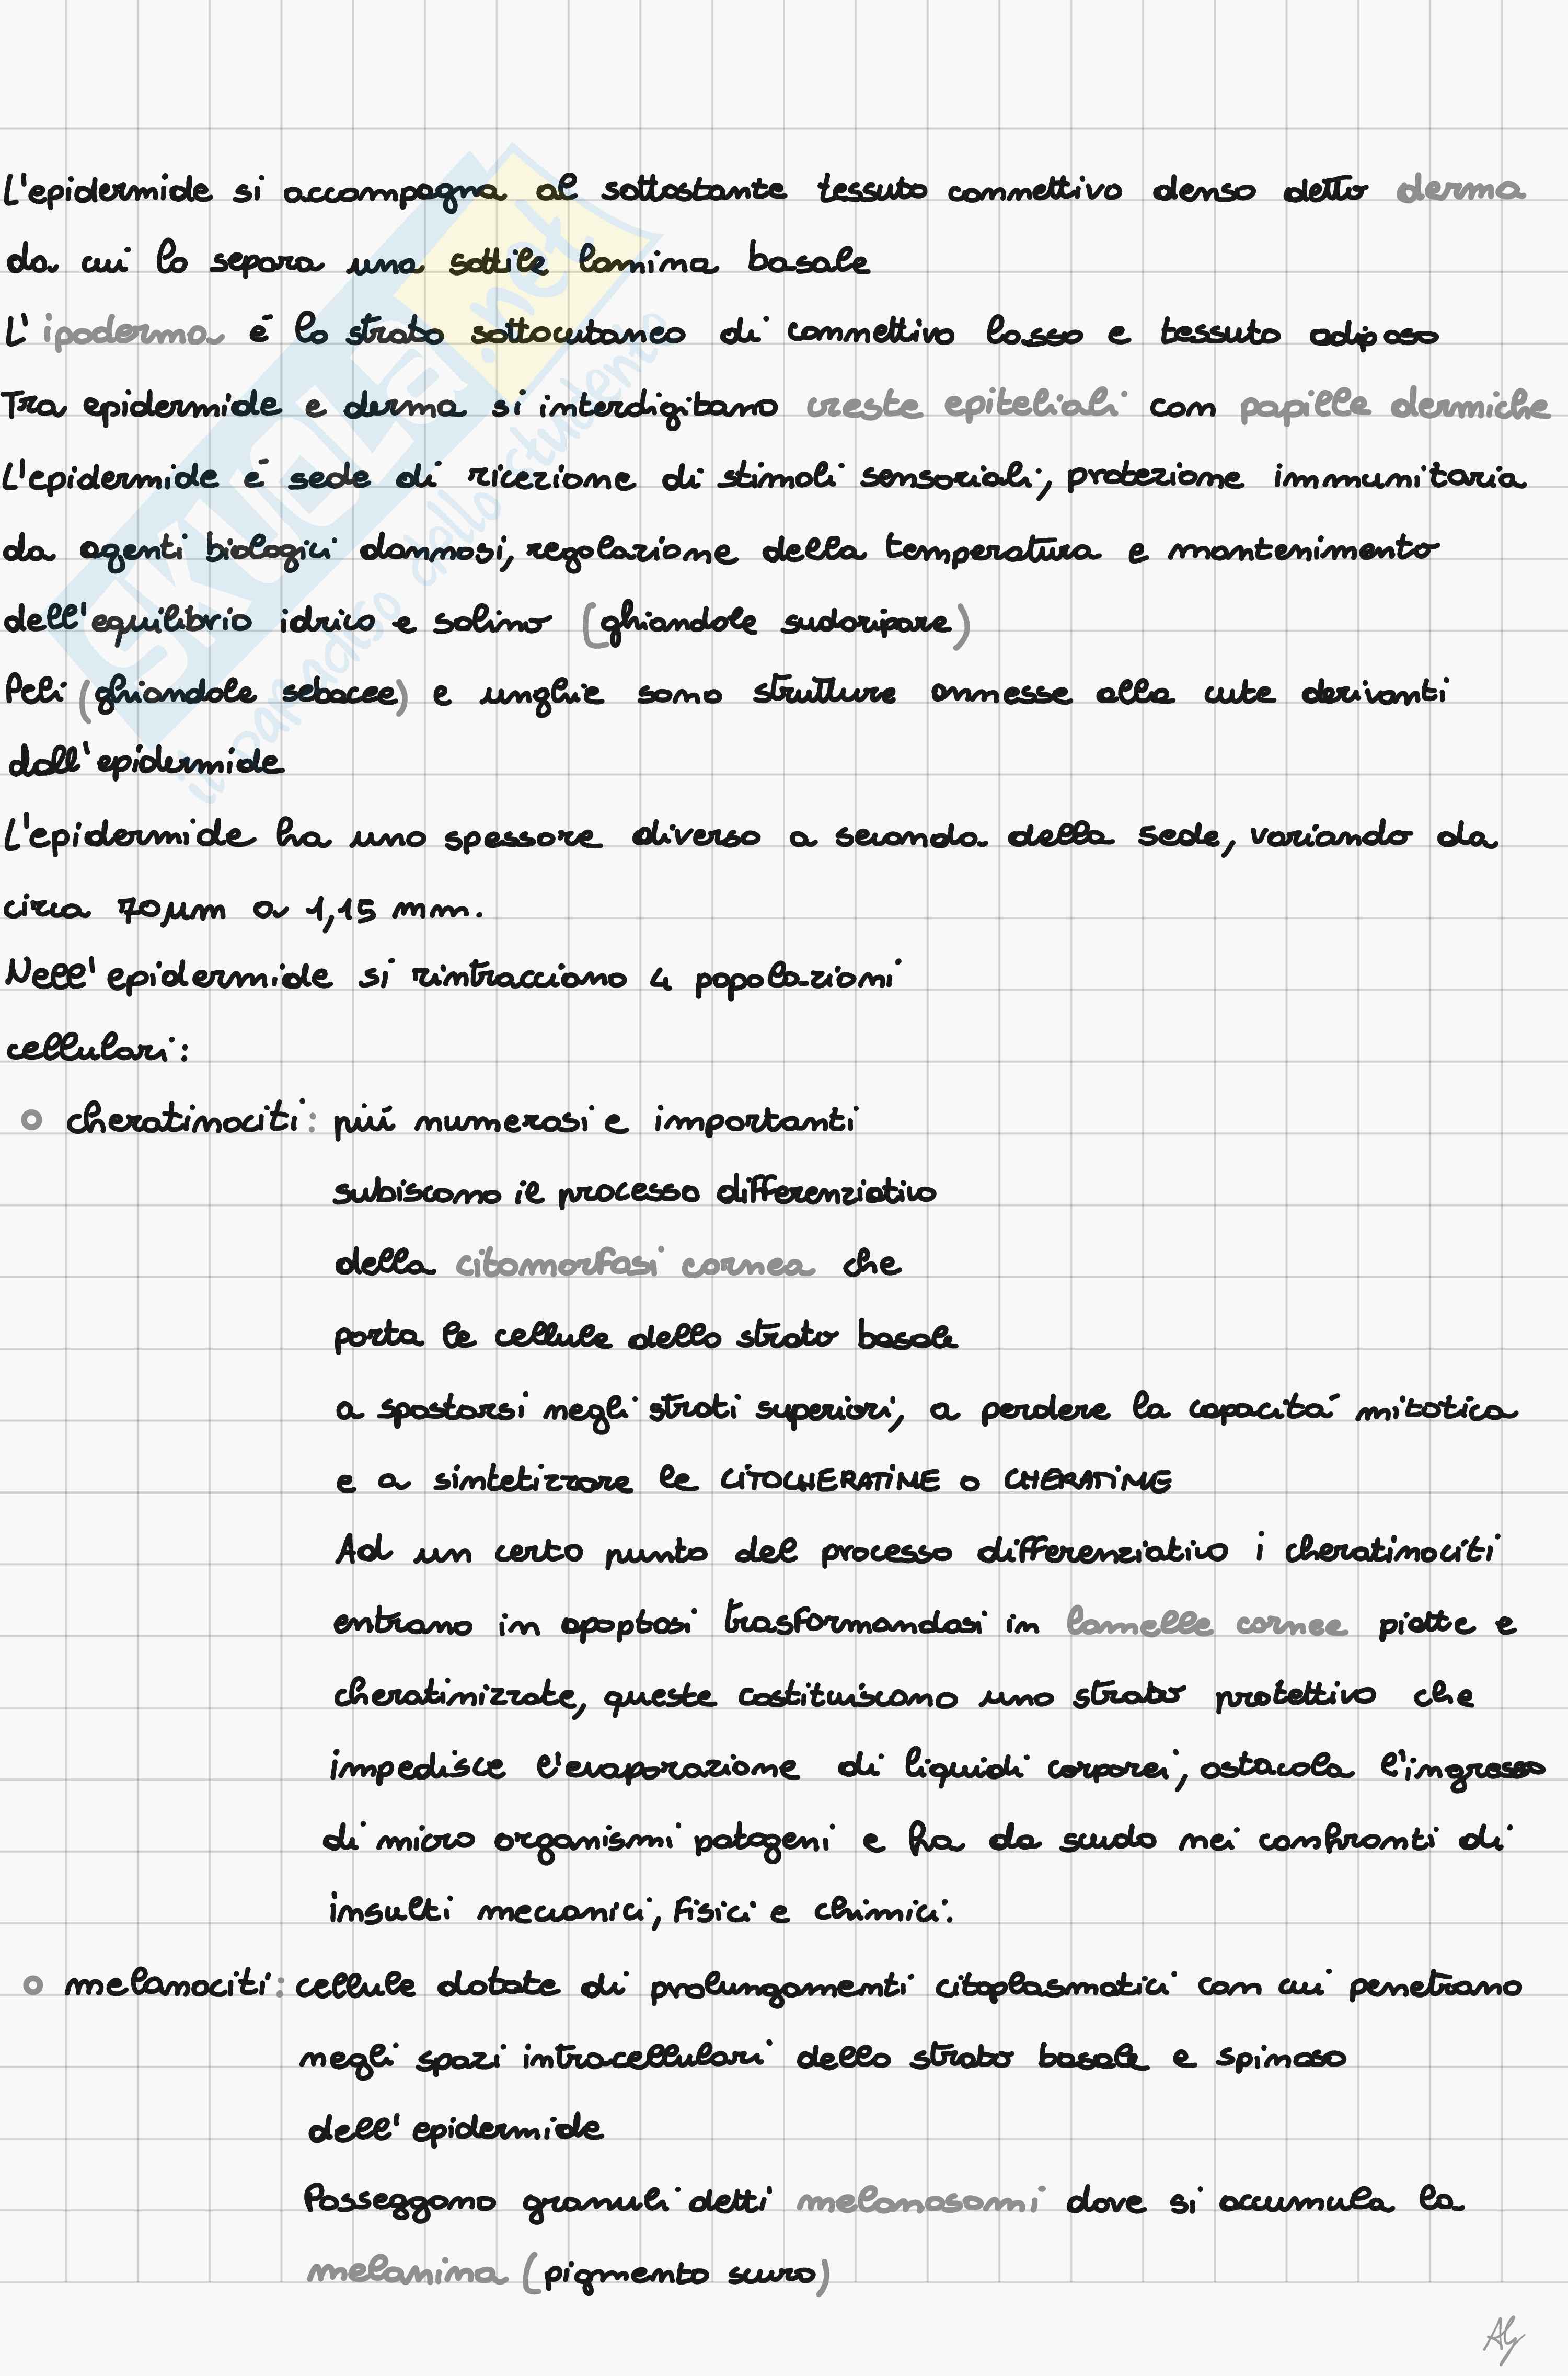 L'epidermide si accompagna al sottostante tessuto connettivo denso detto derma
da cui lo separa una sottile lamina basale
L'ipoderma é lo strato sottocutaneo di connettivo lasso e tessuto adiposo
Tra epidermide e derma si interdigitano creste epiteliali con papille dermiche
L'epidermide é sede di ricezione di stimoli sensoriali, protezione immunitaria
da agenti biologici dannosi, regolazione della temperatura e mantenimento
dell'equilibrio idrico e salino (ghiandole sudoripare)
Peli (ghiandole sebacee) e unghie sono strutture annesse alla cute derivanti
dall'epidermide
L'epidermide ha uno spessore diverso a seconda della sede, variando da
circa 70 µm a 1,15 mm.
Nell'epidermide si rintracciano 4 popolazioni
cellulari:
o cheratinociti: piú numerosi e importanti
subiscono il processo differenziativo
della citomorfosi cornea che
porta le cellule dello strato basale
a spostarsi negli strati superiori, a perdere la capacitá mitotica
e a sintetizzare le CITOCHERATINE o CHERATINE
Ad un certo punto del processo differenziativo i cheratinociti
entrano in apoptosi trasformandosi in lamelle cornee piatte e
cheratinizzate, queste costituiscono uno strato protettivo che
impedisce l'evaporazione di liquidi corporei, ostacola l'ingresso
di micro organismi patogeni e fa da scudo nei confronti di
insulti meccanici, fisici e chimici.
o melanociti: cellule dotate di prolungamenti citoplasmatici con cui penetrano
negli spazi intracellulari dello strato basale e spinoso
dell'epidermide
Posseggono granuli detti melanosomi dove si accumula la
melanina (pigmento scuro)
Aly
SKUOLA.net
il paradiso dello studente